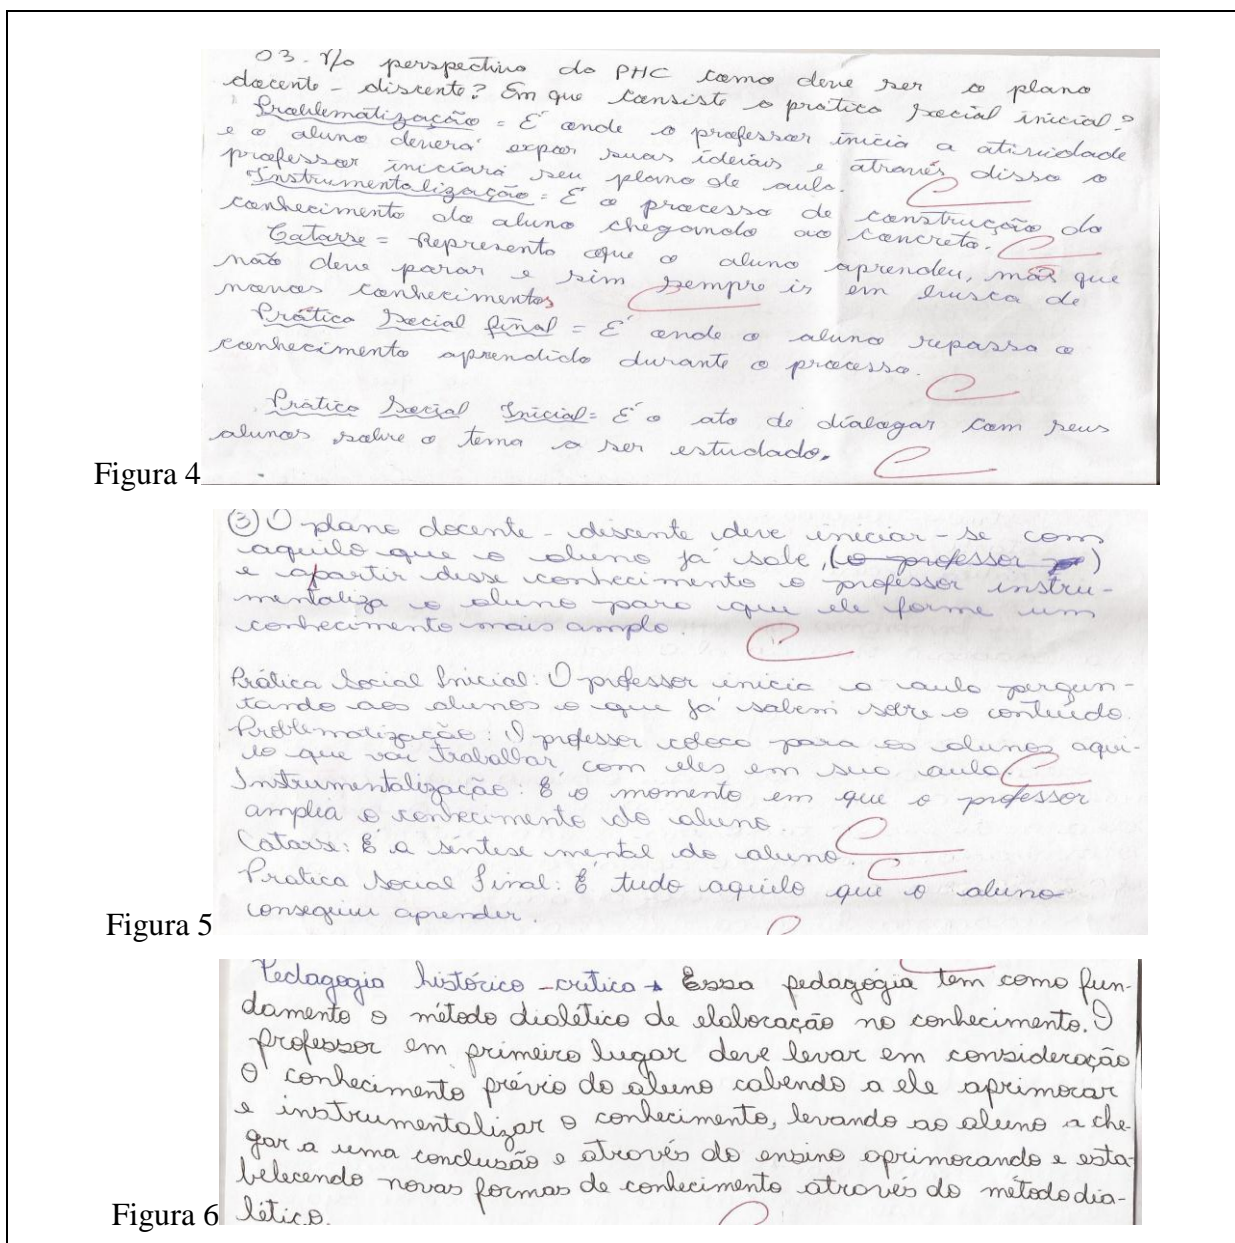 03. Na perspectiva da PHC como deve ser o plano
docente - discente? Em que consiste a prática social inicial?
Problematização = É onde o professor inicia a atividade
e o aluno deverá expor suas idéiais e através disso o
professor iniciará seu plano de aula.
Instrumentalização = É o processo de construção do
conhecimento do aluno chegando ao concreto.
Catarse = Representa que o aluno aprendeu, mas que
não deve parar e sim sempre ir em busca de
novos conhecimentos
Prática Social final = É onde o aluno repassa o
conhecimento aprendido durante o processo.
Prática Social Inicial = É o ato de dialogar com seus
alunos sobre o tema a ser estudado.
Figura 4
③ O plano docente - discente deve iniciar-se com
aquilo que o aluno já sabe, (o professor)
e apartir desse conhecimento o professor instru-
mentaliza o aluno para que ele forme um
conhecimento mais amplo.
Prática Social Inicial: O professor inicia a aula pergun-
tando aos alunos o que já sabem sobre o conteúdo.
Problematização: O professor coloca para os alunos aqui-
lo que vai trabalhar com eles em sua aula.
Instrumentalização: É o momento em que o professor
amplia o conhecimento do aluno.
Catarse: É a síntese mental do aluno.
Pratica Social Final: É tudo aquilo que o aluno
conseguiu aprender.
Figura 5
Pedagogia histórico-crítica → Essa pedagógia tem como fun-
damento o método dialético de elaboração no conhecimento. O
professor em primeiro lugar deve levar em consideração
O conhecimento prévio do aluno cabendo a ele aprimorar
e instrumentalizar o conhecimento, levando ao aluno a che-
gar a uma conclusão e através do ensino aprimorando e esta-
belecendo novas formas de conhecimento através do método dia-
lético.
Figura 6